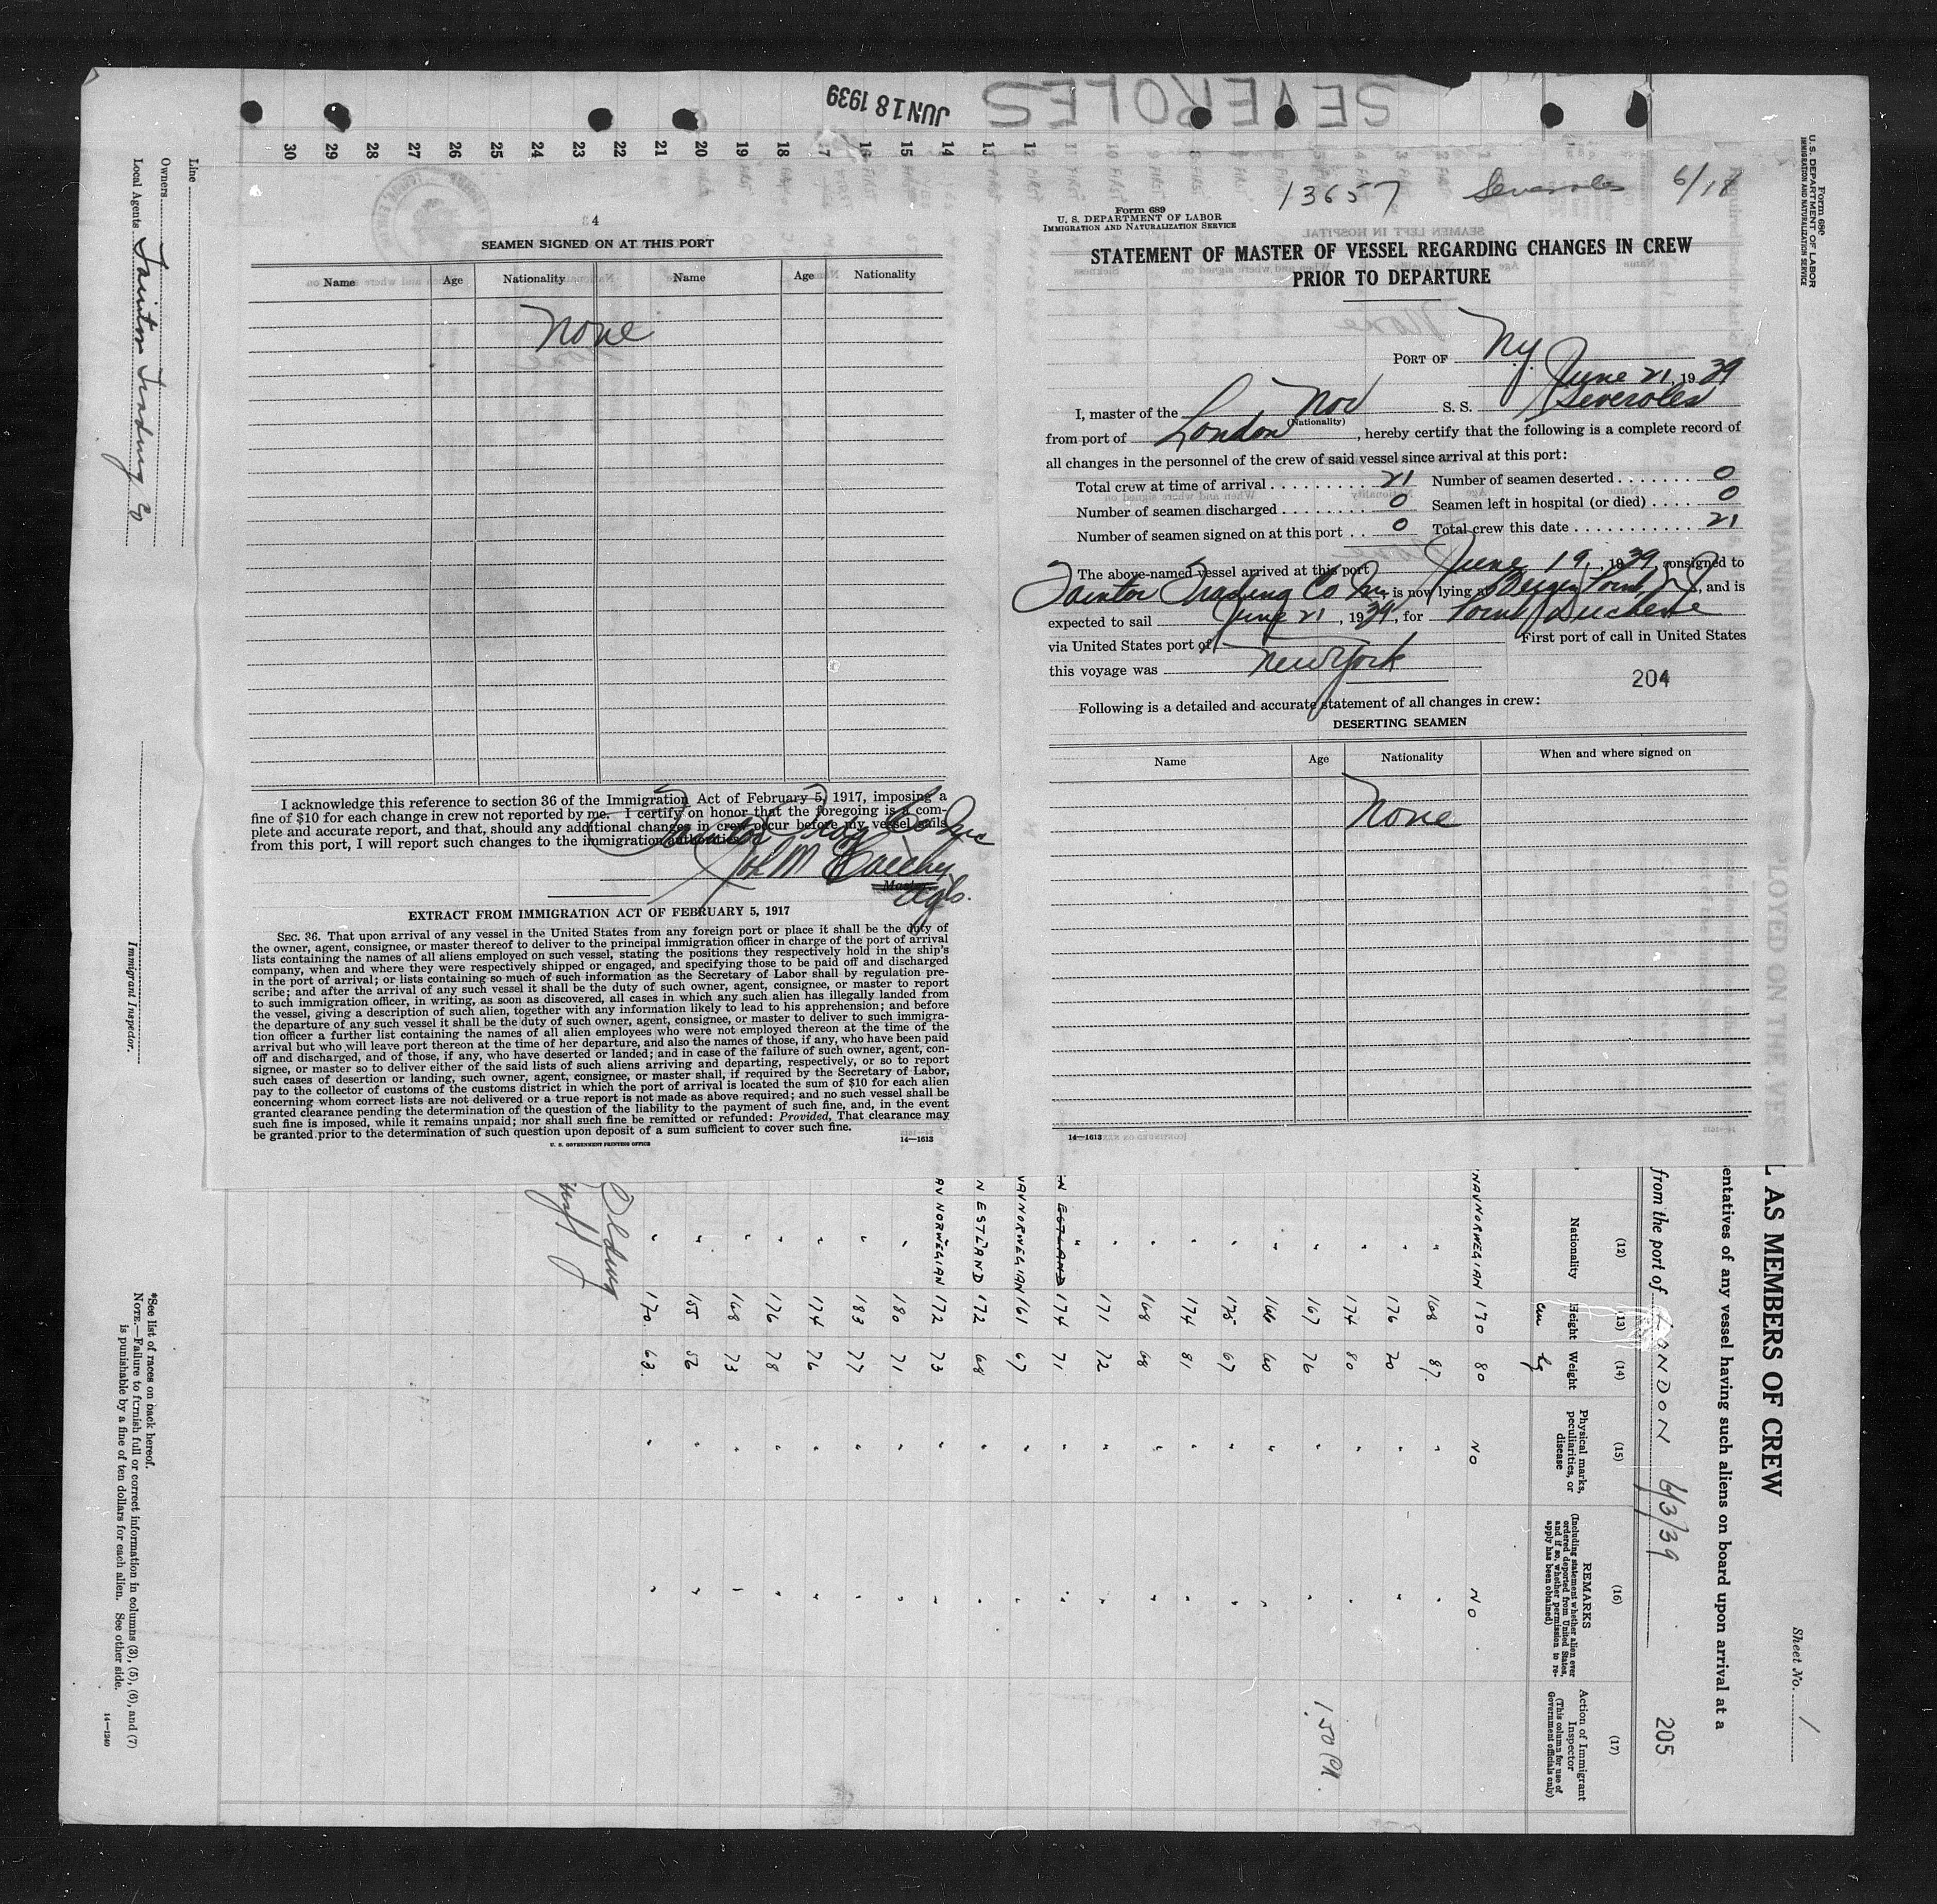 JUN 18 1939
SEVEROLES
13657 Severoles 6/18
30 29 28 27 26 25 24 23 22 21 20 19 18 17 16 15 14 13 12
4
SEAMEN SIGNED ON AT THIS PORT
Name Age Nationality Name Age Nationality
None
I acknowledge this reference to section 36 of the Immigration Act of February 5, 1917, imposing a
fine of $10 for each change in crew not reported by me. I certify on honor that the foregoing is a com-
plete and accurate report, and that, should any additional changes in crew occur before my vessel sails
from this port, I will report such changes to the immigration authorities.
Master.
Agts.
EXTRACT FROM IMMIGRATION ACT OF FEBRUARY 5, 1917
SEC. 36. That upon arrival of any vessel in the United States from any foreign port or place it shall be the duty of
the owner, agent, consignee, or master thereof to deliver to the principal immigration officer in charge of the port of arrival
lists containing the names of all aliens employed on such vessel, stating the positions they respectively hold in the ship's
company, when and where they were respectively shipped or engaged, and specifying those to be paid off and discharged
in the port of arrival; or lists containing so much of such information as the Secretary of Labor shall by regulation pre-
scribe; and after the arrival of any such vessel it shall be the duty of such owner, agent, consignee, or master to report
to such immigration officer, in writing, as soon as discovered, all cases in which any such alien has illegally landed from
the vessel, giving a description of such alien, together with any information likely to lead to his apprehension; and before
the departure of any such vessel it shall be the duty of such owner, agent, consignee, or master to deliver to such immigra-
tion officer a further list containing the names of all alien employees who were not employed thereon at the time of the
arrival but who will leave port thereon at the time of her departure, and also the names of those, if any, who have been paid
off and discharged, and of those, if any, who have deserted or landed; and in case of the failure of such owner, agent, con-
signee, or master so to deliver either of the said lists of such aliens arriving and departing, respectively, or so to report
such cases of desertion or landing, such owner, agent, consignee, or master shall, if required by the Secretary of Labor,
pay to the collector of customs of the customs district in which the port of arrival is located the sum of $10 for each alien
concerning whom correct lists are not delivered or a true report is not made as above required; and no such vessel shall be
granted clearance pending the determination of the question of the liability to the payment of such fine, and, in the event
such fine is imposed, while it remains unpaid; nor shall such fine be remitted or refunded: Provided, That clearance may
be granted prior to the determination of such question upon deposit of a sum sufficient to cover such fine.
U. S. GOVERNMENT PRINTING OFFICE 14—1613
Form 689
U. S. DEPARTMENT OF LABOR
IMMIGRATION AND NATURALIZATION SERVICE
STATEMENT OF MASTER OF VESSEL REGARDING CHANGES IN CREW
PRIOR TO DEPARTURE
PORT OF N.Y.
June 21, 1939
I, master of the Nor S. S. Severoles
(Nationality)
from port of London, hereby certify that the following is a complete record of
all changes in the personnel of the crew of said vessel since arrival at this port:
Total crew at time of arrival 21 Number of seamen deserted 0
Number of seamen discharged 0 Seamen left in hospital (or died) 0
Number of seamen signed on at this port 0 Total crew this date 21
The above-named vessel arrived at this port June 19, 1939, consigned to
Tainton Trading Co Inc, is now lying at Bergen Point, N J, and is
expected to sail June 21, 1939, for Point Duchene
via United States port of First port of call in United States
this voyage was New York
204
Following is a detailed and accurate statement of all changes in crew:
DESERTING SEAMEN
Name Age Nationality When and where signed on
None
14—1613
Form 680
U. S. DEPARTMENT OF LABOR
IMMIGRATION AND NATURALIZATION SERVICE
L AS MEMBERS OF CREW
Sheet No. 1
entatives of any vessel having such aliens on board upon arrival at a
from the port of LONDON 6/3/39
205
(12) (13) (14) (15) (16) (17)
Nationality
Height
Weight
Physical marks, peculiarities, or disease
REMARKS
(Including statement whether alien ever ordered deported from United States, and if so, whether permission to re-apply has been obtained)
Action of Immigrant Inspector
(This column for use of Government officials only)
cm kg
NAV NORWEGIAN 170 80 NO NO
" 168 87 " "
" 176 70 " "
" 174 80 " "
" 167 76 " "
" 166 60 " "
" 175 67 " "
" 174 81 " "
" 168 68 " "
" 171 72 " "
N ESTLAND " 174 71 " "
VAV NORWEGIAN 161 67 " "
N ESTLAND 172 68 " "
AV NORWEGIAN 172 73 " "
" 180 71 " "
" 183 77 " "
" 174 76 " "
" 176 78 " "
" 168 73 " "
" 155 56 " "
" 170 63 " "
1.50 PM.
Line
Owners
Local Agents Tainton Trading Co
Immigrant Inspector.
*See list of races on back hereof.
NOTE.—Failure to furnish full or correct information in columns (3), (5), (6), and (7)
is punishable by a fine of ten dollars for each alien. See other side.
14—1240